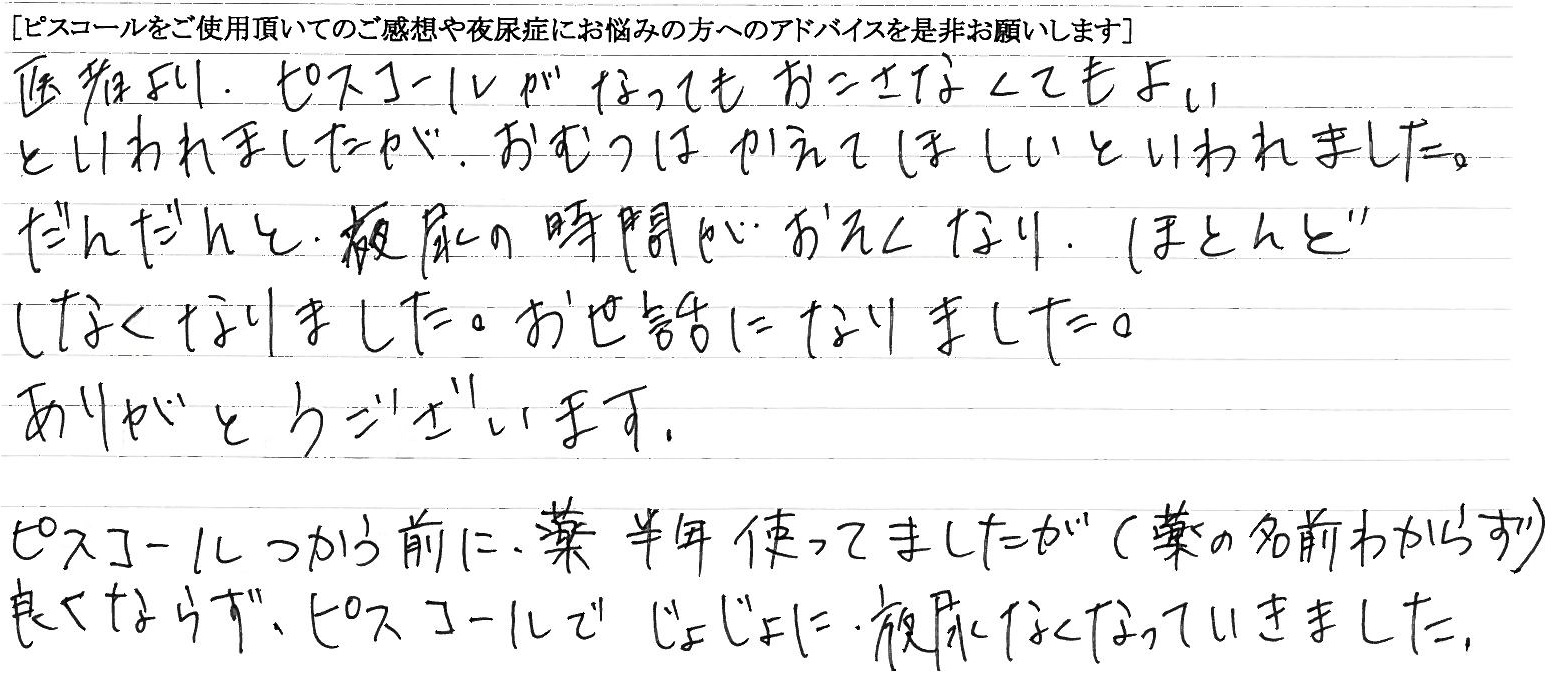 [ピスコールをご使用頂いてのご感想や夜尿症にお悩みの方へのアドバイスを是非お願いします]
医者より、ピスコールがなってもおこさなくてもよい
といわれましたが、おむつはかえてほしいといわれました。
だんだんと、夜尿の時間が、おそくなり、ほとんど
しなくなりました。お世話になりました。
ありがとうございます.
ピスコールつかう前に、薬 半年 使ってましたが(薬の名前わからず)
良くならず、ピスコールで じょじょに、夜尿なくなっていきました.